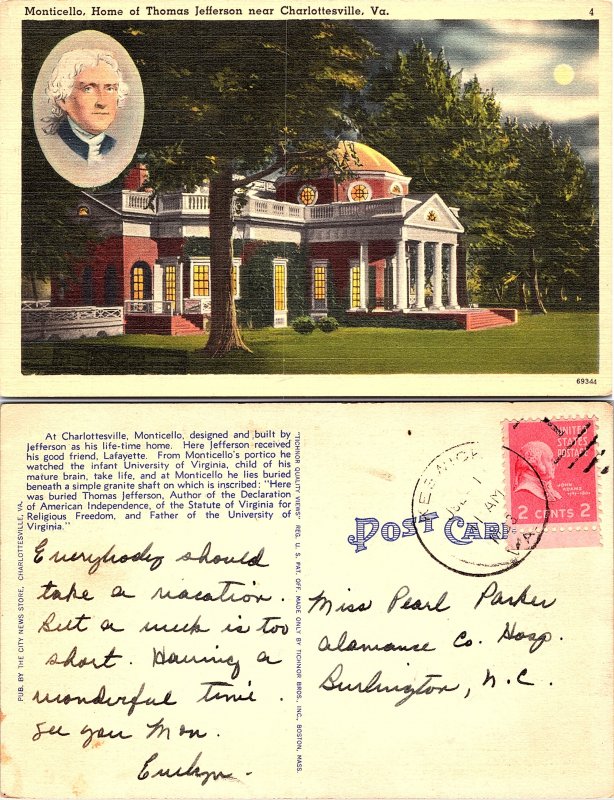 Monticello, Home of Thomas Jefferson near Charlottesville, Va.
4
69344
At Charlottesville, Monticello, designed and built by
Jefferson as his life-time home. Here Jefferson received
his good friend, Lafayette. From Monticello's portico he
watched the infant University of Virginia, child of his
mature brain, take life, and at Monticello he lies buried
beneath a simple granite shaft on which is inscribed: "Here
was buried Thomas Jefferson, Author of the Declaration
of American Independence, of the Statute of Virginia for
Religious Freedom, and Father of the University of
Virginia."
Everybody should
take a vacation.
But a week is too
short. Having a
wonderful time.
See you Mon.
Evelyn.
PUB. BY THE CITY NEWS STORE, CHARLOTTESVILLE, VA.
"TICHNOR QUALITY VIEWS" REG. U. S. PAT. OFF. MADE ONLY BY TICHNOR BROS., INC., BOSTON, MASS.
POST CARD
KESWICK
AM
VA.
UNITED
STATES
POSTAGE
JOHN
ADAMS
2 CENTS 2
Miss Pearl Parker
Alamance Co. Hosp.
Burlington, N.C.